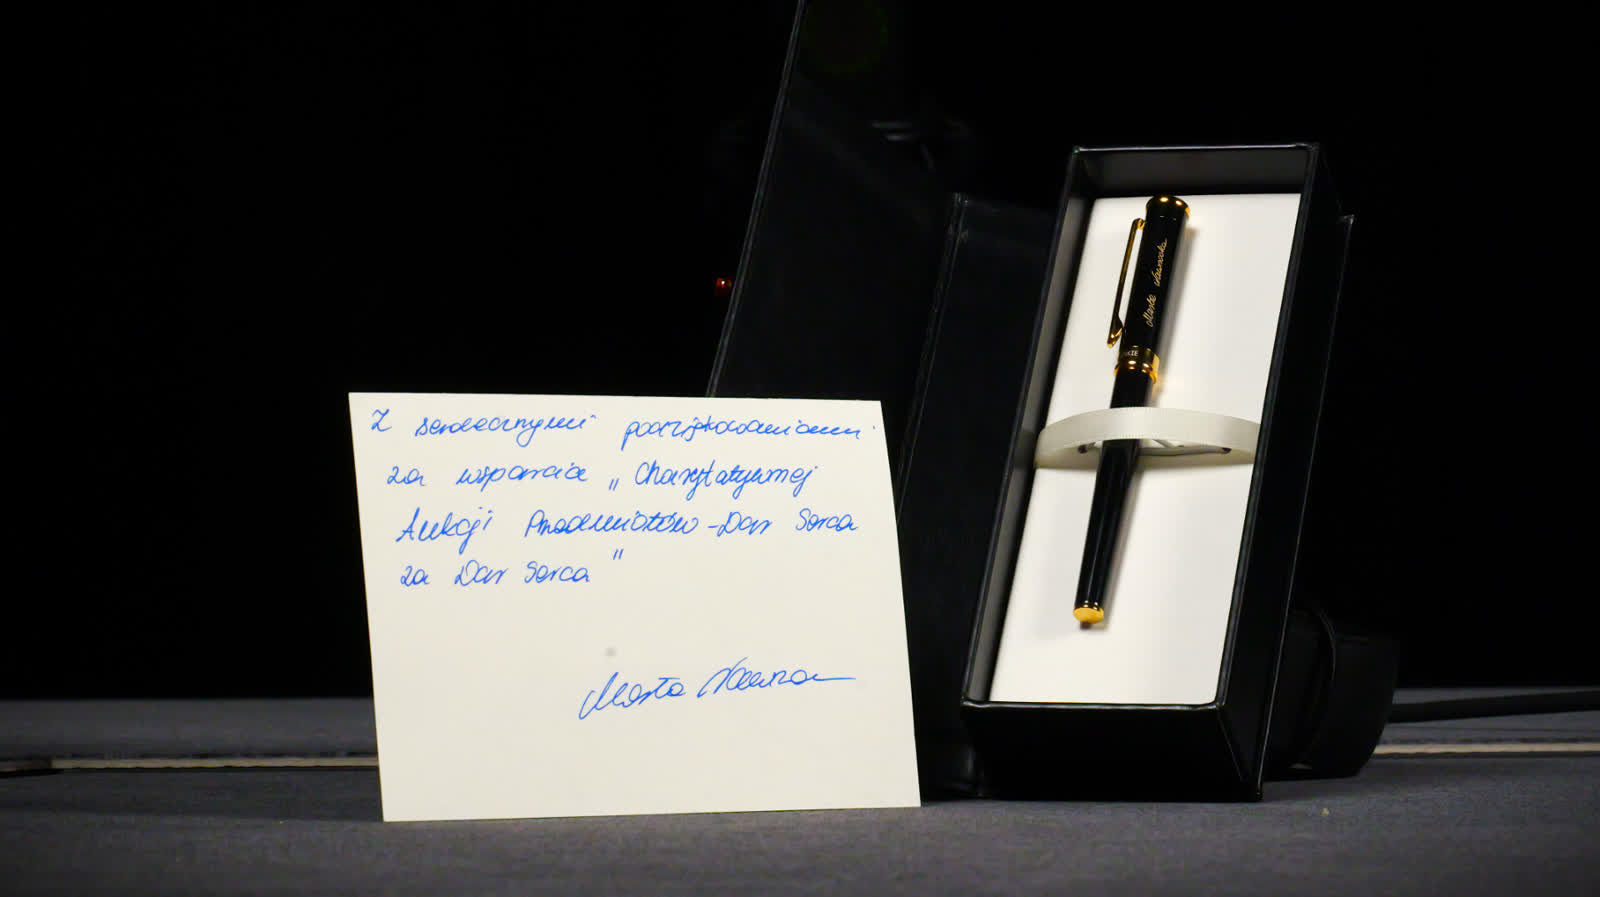 Z serdecznymi podziękowaniami
za wsparcie „Charytatywnej
Aukcji Przedmiotów - Dar Serca
za Dar Serca"
Marta
Marta
KIE